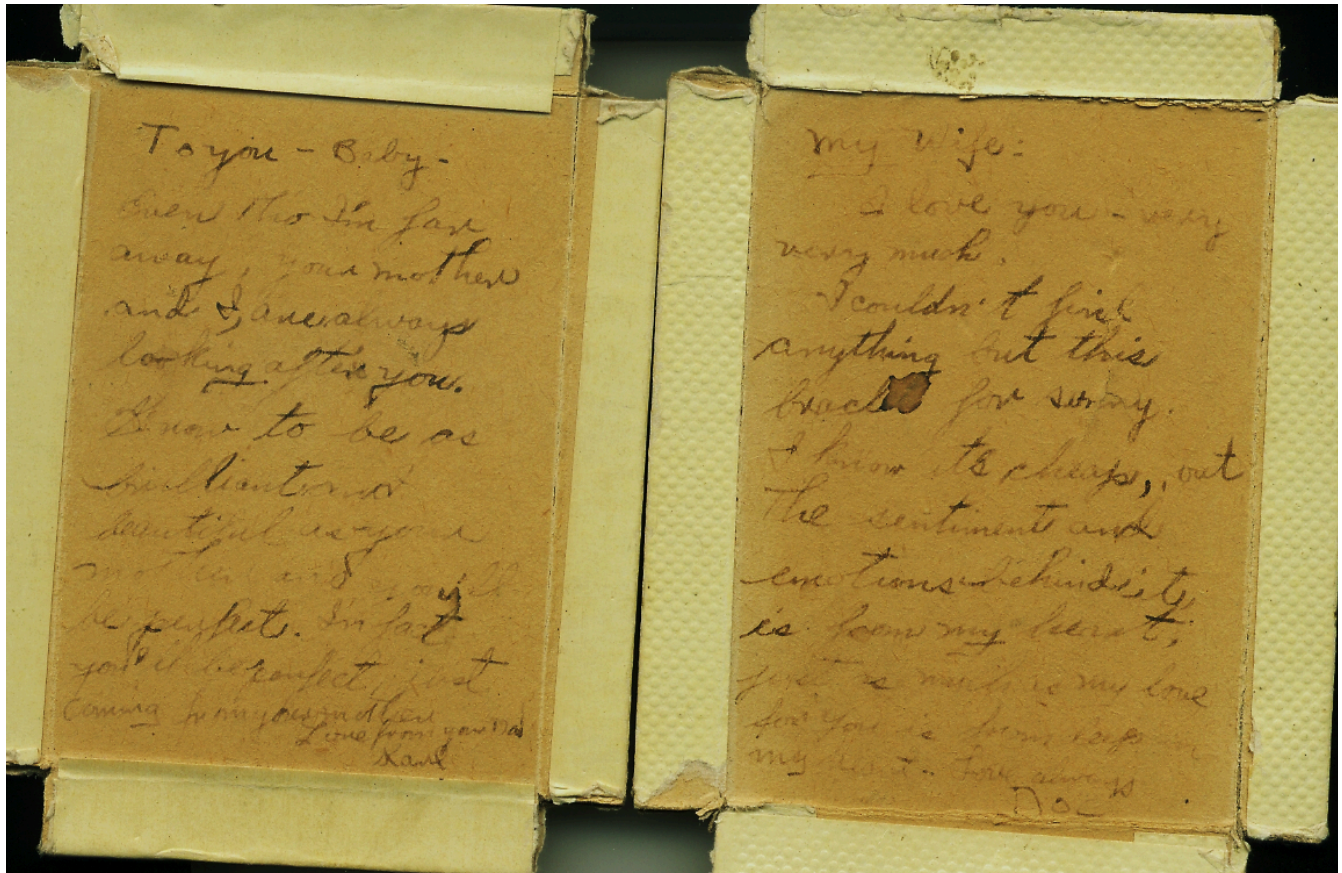 To you - Baby -
Even tho I'm far
away, your mother
and I, are always
looking after you.
Grow to be as
brilliant and
beautiful as your
mother and you'll
be perfect. In fact
you'll be perfect, just
coming from your mother
Love from your Dad
Karl
My Wife:
I love you - very
very much.
I couldn't find
anything but this
for sunny.
I know its cheap, but
the sentiment and
emotions behind it,
is from my heart;
just as much as my love
for you is from deep in
my heart - Love always